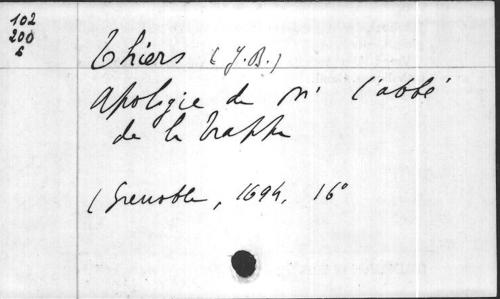 102
200
6
Thiers (J.B.)
Apologie de Mr l'abbé
de la Trappe
(Grenoble, 1694, 16°